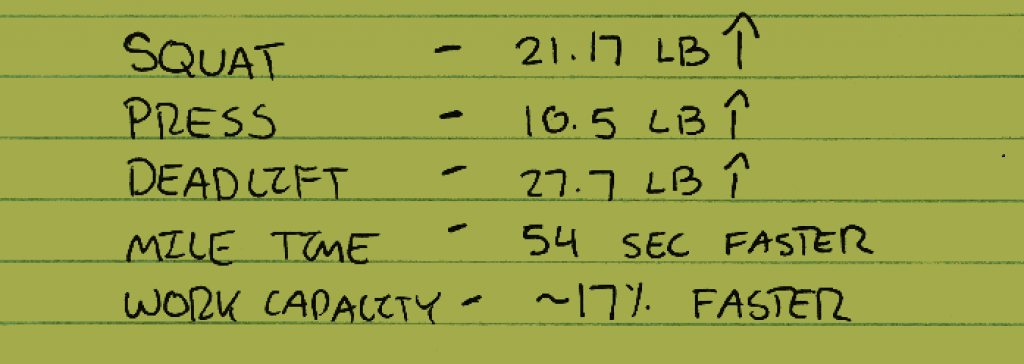 SQUAT - 21.17 LB ↑
PRESS - 10.5 LB ↑
DEADLIFT - 27.7 LB ↑
MILE TIME - 54 SEC FASTER
WORK CAPACITY - ~17% FASTER